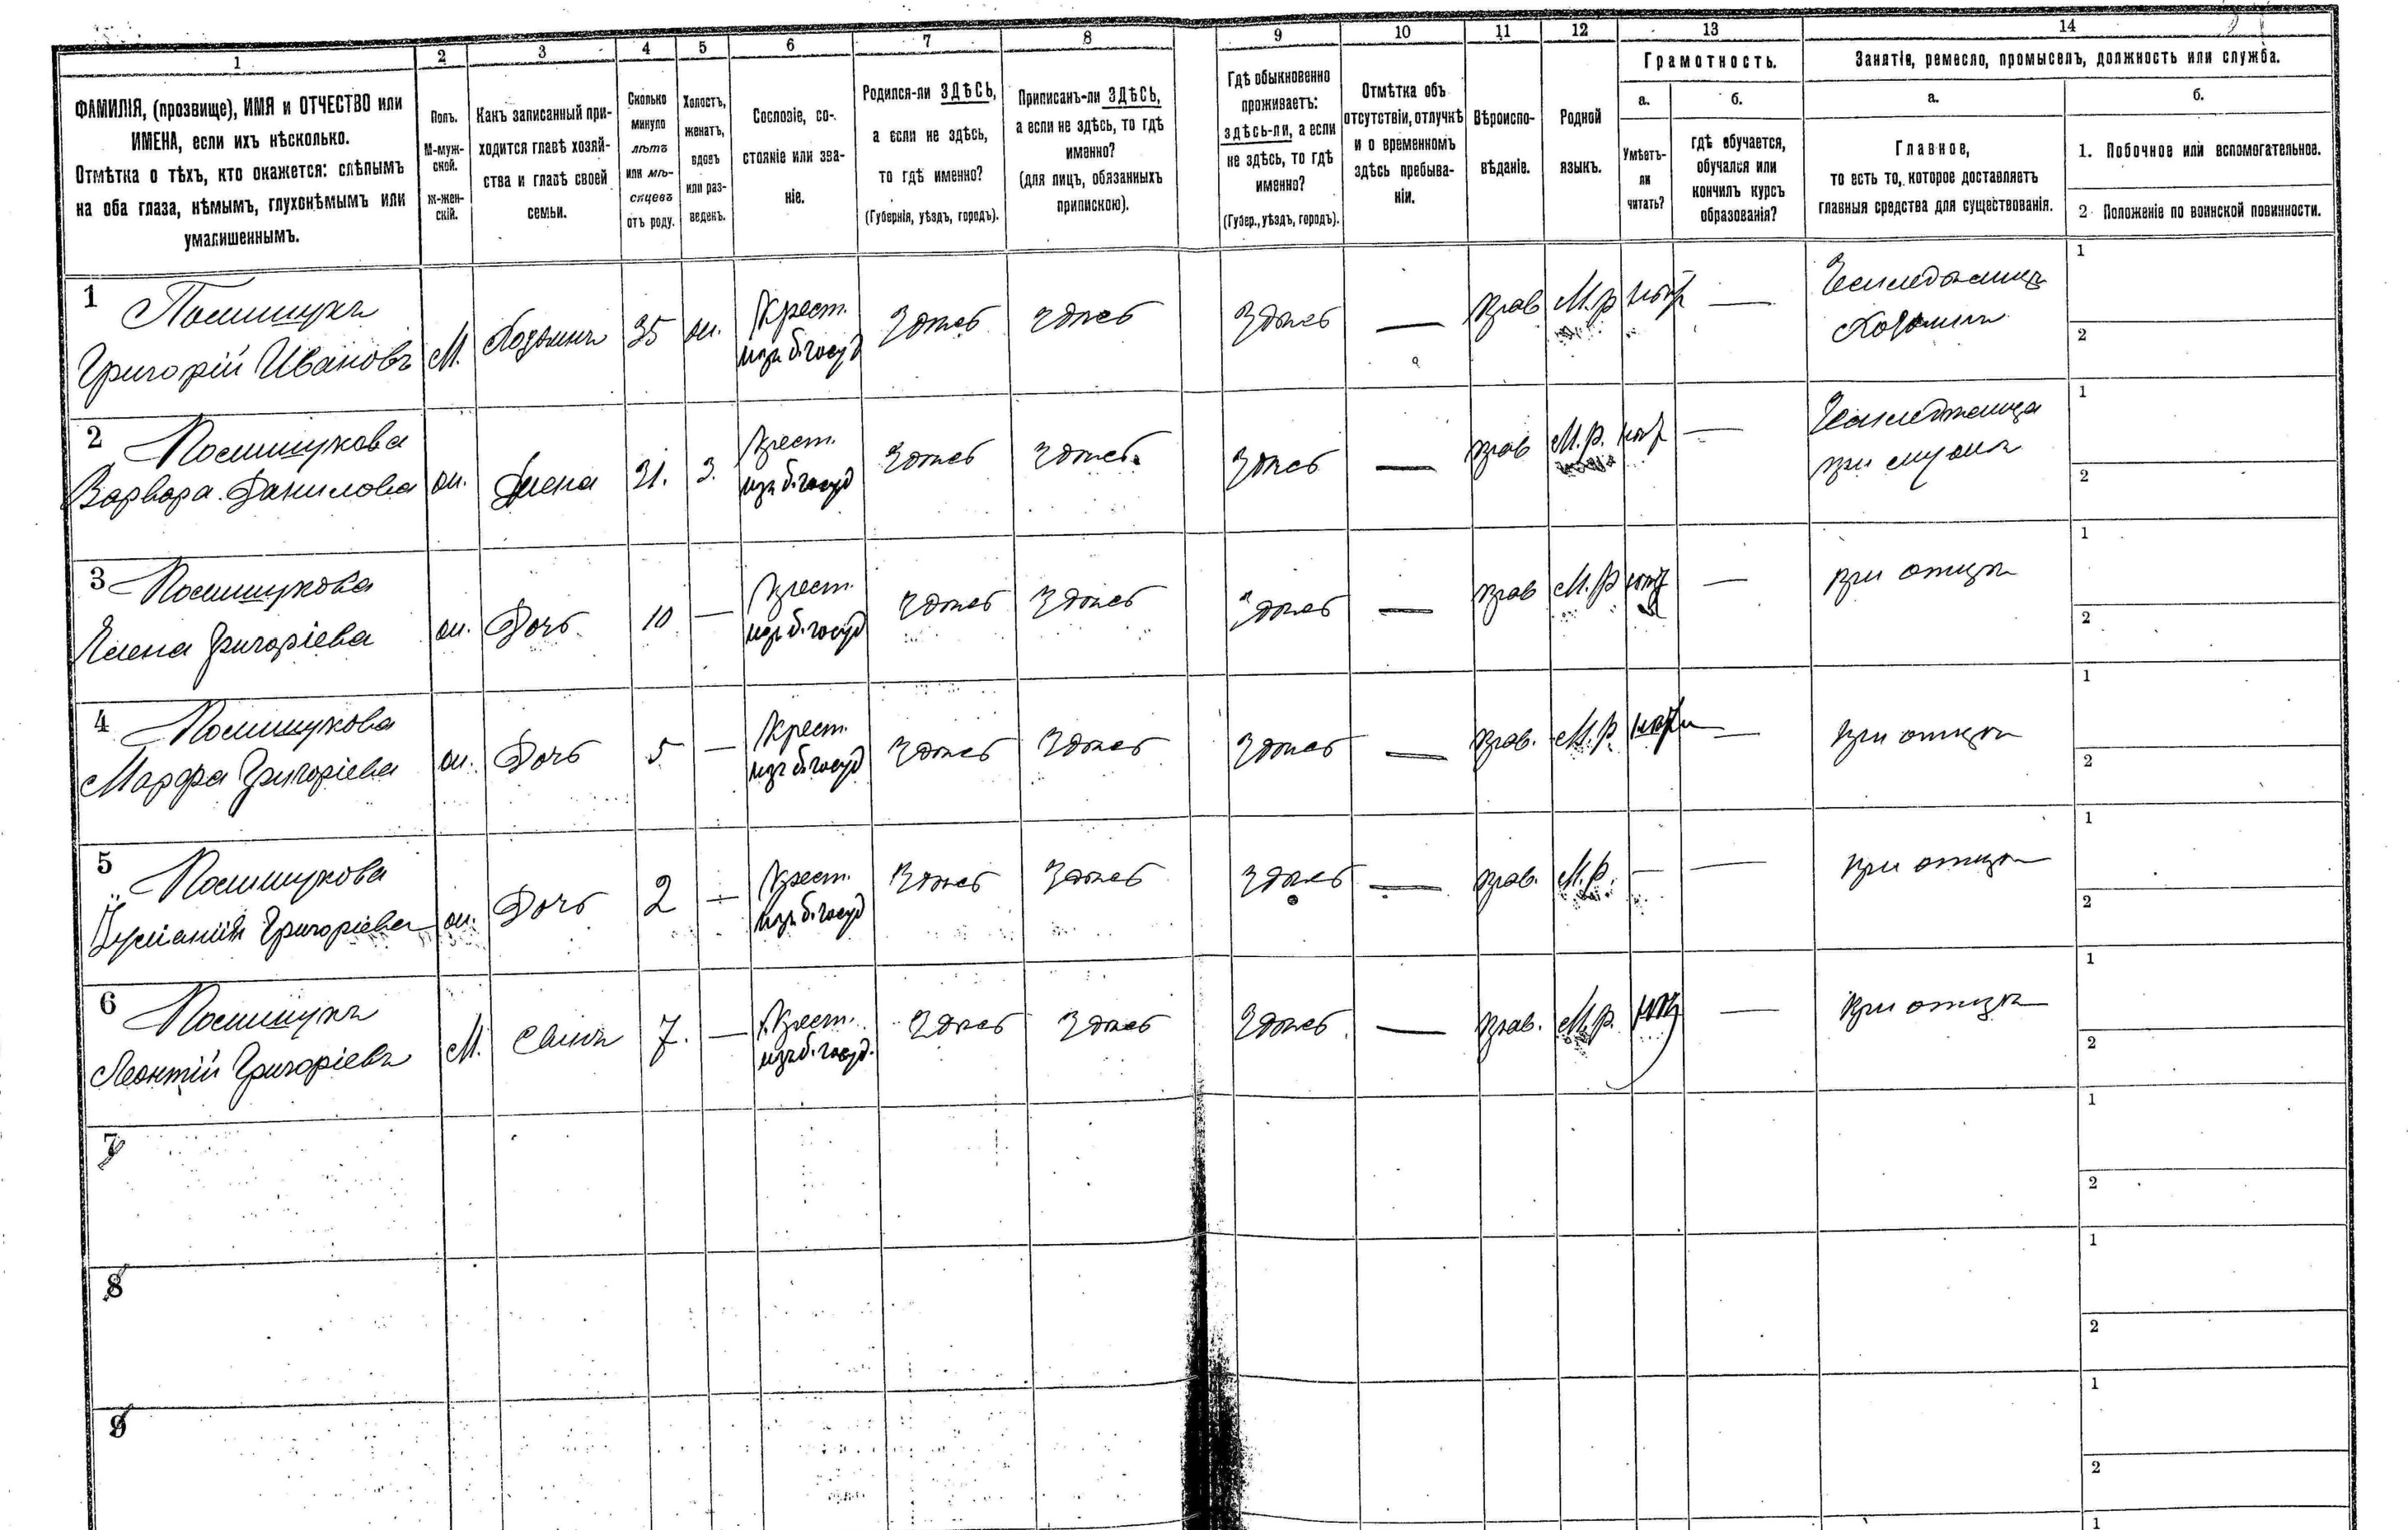 1
2
3
4
5
6
7
8
9
10
11
12
13
14
ФАМИЛІЯ, (прозвище), ИМЯ и ОТЧЕСТВО или
ИМЕНА, если ихъ нѣсколько.
Отмѣтка о тѣхъ, кто окажется: слѣпымъ
на оба глаза, нѣмымъ, глухонѣмымъ или
умалишеннымъ.
Полъ.
М-муж-
ской.
Ж-жен-
скій.
Какъ записанный при-
ходится главѣ хозяй-
ства и главѣ своей
семьи.
Сколько
минуло
лѣтъ
или мѣ-
сяцевъ
отъ роду.
Холостъ,
женатъ,
вдовъ
или раз-
веденъ.
Сословіе, со-
стояніе или зва-
ніе.
Родился-ли ЗДѢСЬ,
а если не здѣсь,
то гдѣ именно?
(Губернія, уѣздъ, городъ).
Приписанъ-ли ЗДѢСЬ,
а если не здѣсь, то гдѣ
именно?
(для лицъ, обязанныхъ
припискою).
Гдѣ обыкновенно
проживаетъ:
здѣсь-ли, а если
не здѣсь, то гдѣ
именно?
(Губер., уѣздъ, городъ).
Отмѣтка объ
отсутствіи, отлучкѣ
и о временномъ
здѣсь пребыва-
ніи.
Вѣроиспо-
вѣданіе.
Родной
языкъ.
Грамотность.
а.
Умѣетъ-
ли
читать?
б.
гдѣ обучается,
обучался или
кончилъ курсъ
образованія?
Занятіе, ремесло, промыселъ, должность или служба.
а.
Главное,
то есть то, которое доставляетъ
главныя средства для существованія.
б.
1. Побочное или вспомогательное.
2 Положеніе по воинской повинности.
1 Полищукъ
Григорій Ивановъ
М. Хозяинъ 35 ж. Крест.
изъ б. госуд
здѣсь здѣсь здѣсь — прав М.Р нѣтъ —
Земледѣлецъ
Хозяинъ
1
2
2 Полищукова
Варвара Данилова
ж. Жена 31. з. Крест.
изъ б. госуд
здѣсь здѣсь здѣсь — прав М.Р. нѣтъ —
при мужѣ
1
2
3 Полищукова
Елена Григоріева
ж. Дочь 10 — Крест.
изъ б. госуд
здѣсь здѣсь здѣсь — прав М.Р нѣтъ — при отцѣ
1
2
4 Полищукова
Марфа Григоріева
ж. Дочь 5 — Крест.
изъ б. госуд
здѣсь здѣсь здѣсь — прав. М.Р. нѣтъ — при отцѣ
1
2
5 Полищукова
Григоріева
ж. Дочь 2 — Крест.
изъ б. госуд
здѣсь здѣсь здѣсь — прав. М.Р. — — при отцѣ
1
2
6 Полищукъ
Леонтій Григоріевъ
М. Сынъ 7. — Крест.
изъ б. госуд.
здѣсь здѣсь здѣсь — прав. М.Р. нѣтъ — при отцѣ
1
2
7
1
2
8
1
2
9
1
2
1